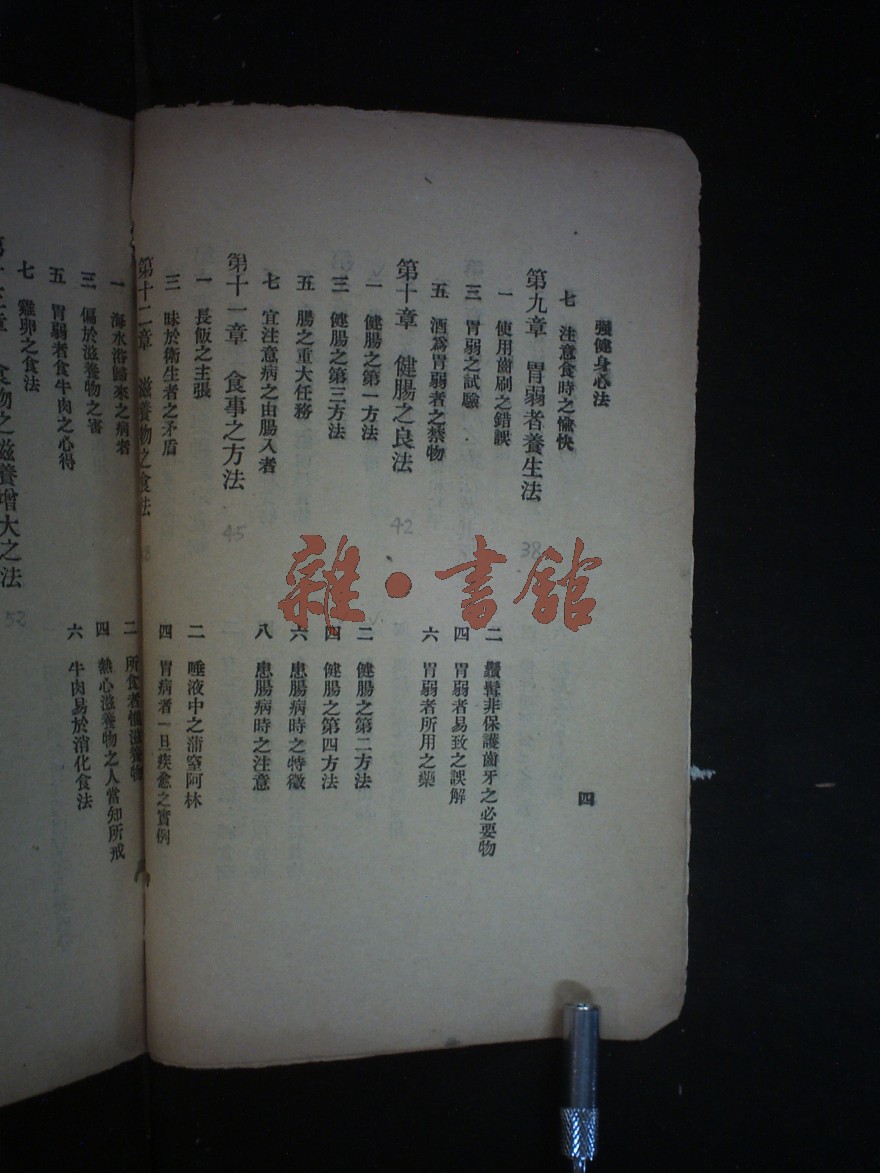 强健身心法
四
七 注意食時之愉快
第九章 胃弱者養生法
38
一 使用齒刷之錯誤
二 鬚髯非保護齒牙之必要物
三 胃弱之試驗
四 胃弱者易致之誤解
五 酒爲胃弱者之禁物
六 胃弱者所用之藥
第十章 健腸之良法
42
一 健腸之第一方法
二 健腸之第二方法
三 健腸之第三方法
四 健腸之第四方法
五 腸之重大任務
六 患腸病時之特徵
七 宜注意病之由腸入者
八 患腸病時之注意
第十一章 食事之方法
45
一 長飯之主張
二 唾液中之蒲窒阿林
三 昧於衛生者之矛盾
四 胃病者一旦疾愈之實例
第十二章 滋養物之食法
一 海水浴歸來之病者
二 所食者惟滋養物
三 偏於滋養物之害
四 熱心滋養物之人當知所戒
五 胃弱者食牛肉之心得
六 牛肉易於消化食法
七 雞卵之食法
第十三章 食物之滋養增大之法
52
雜·書館